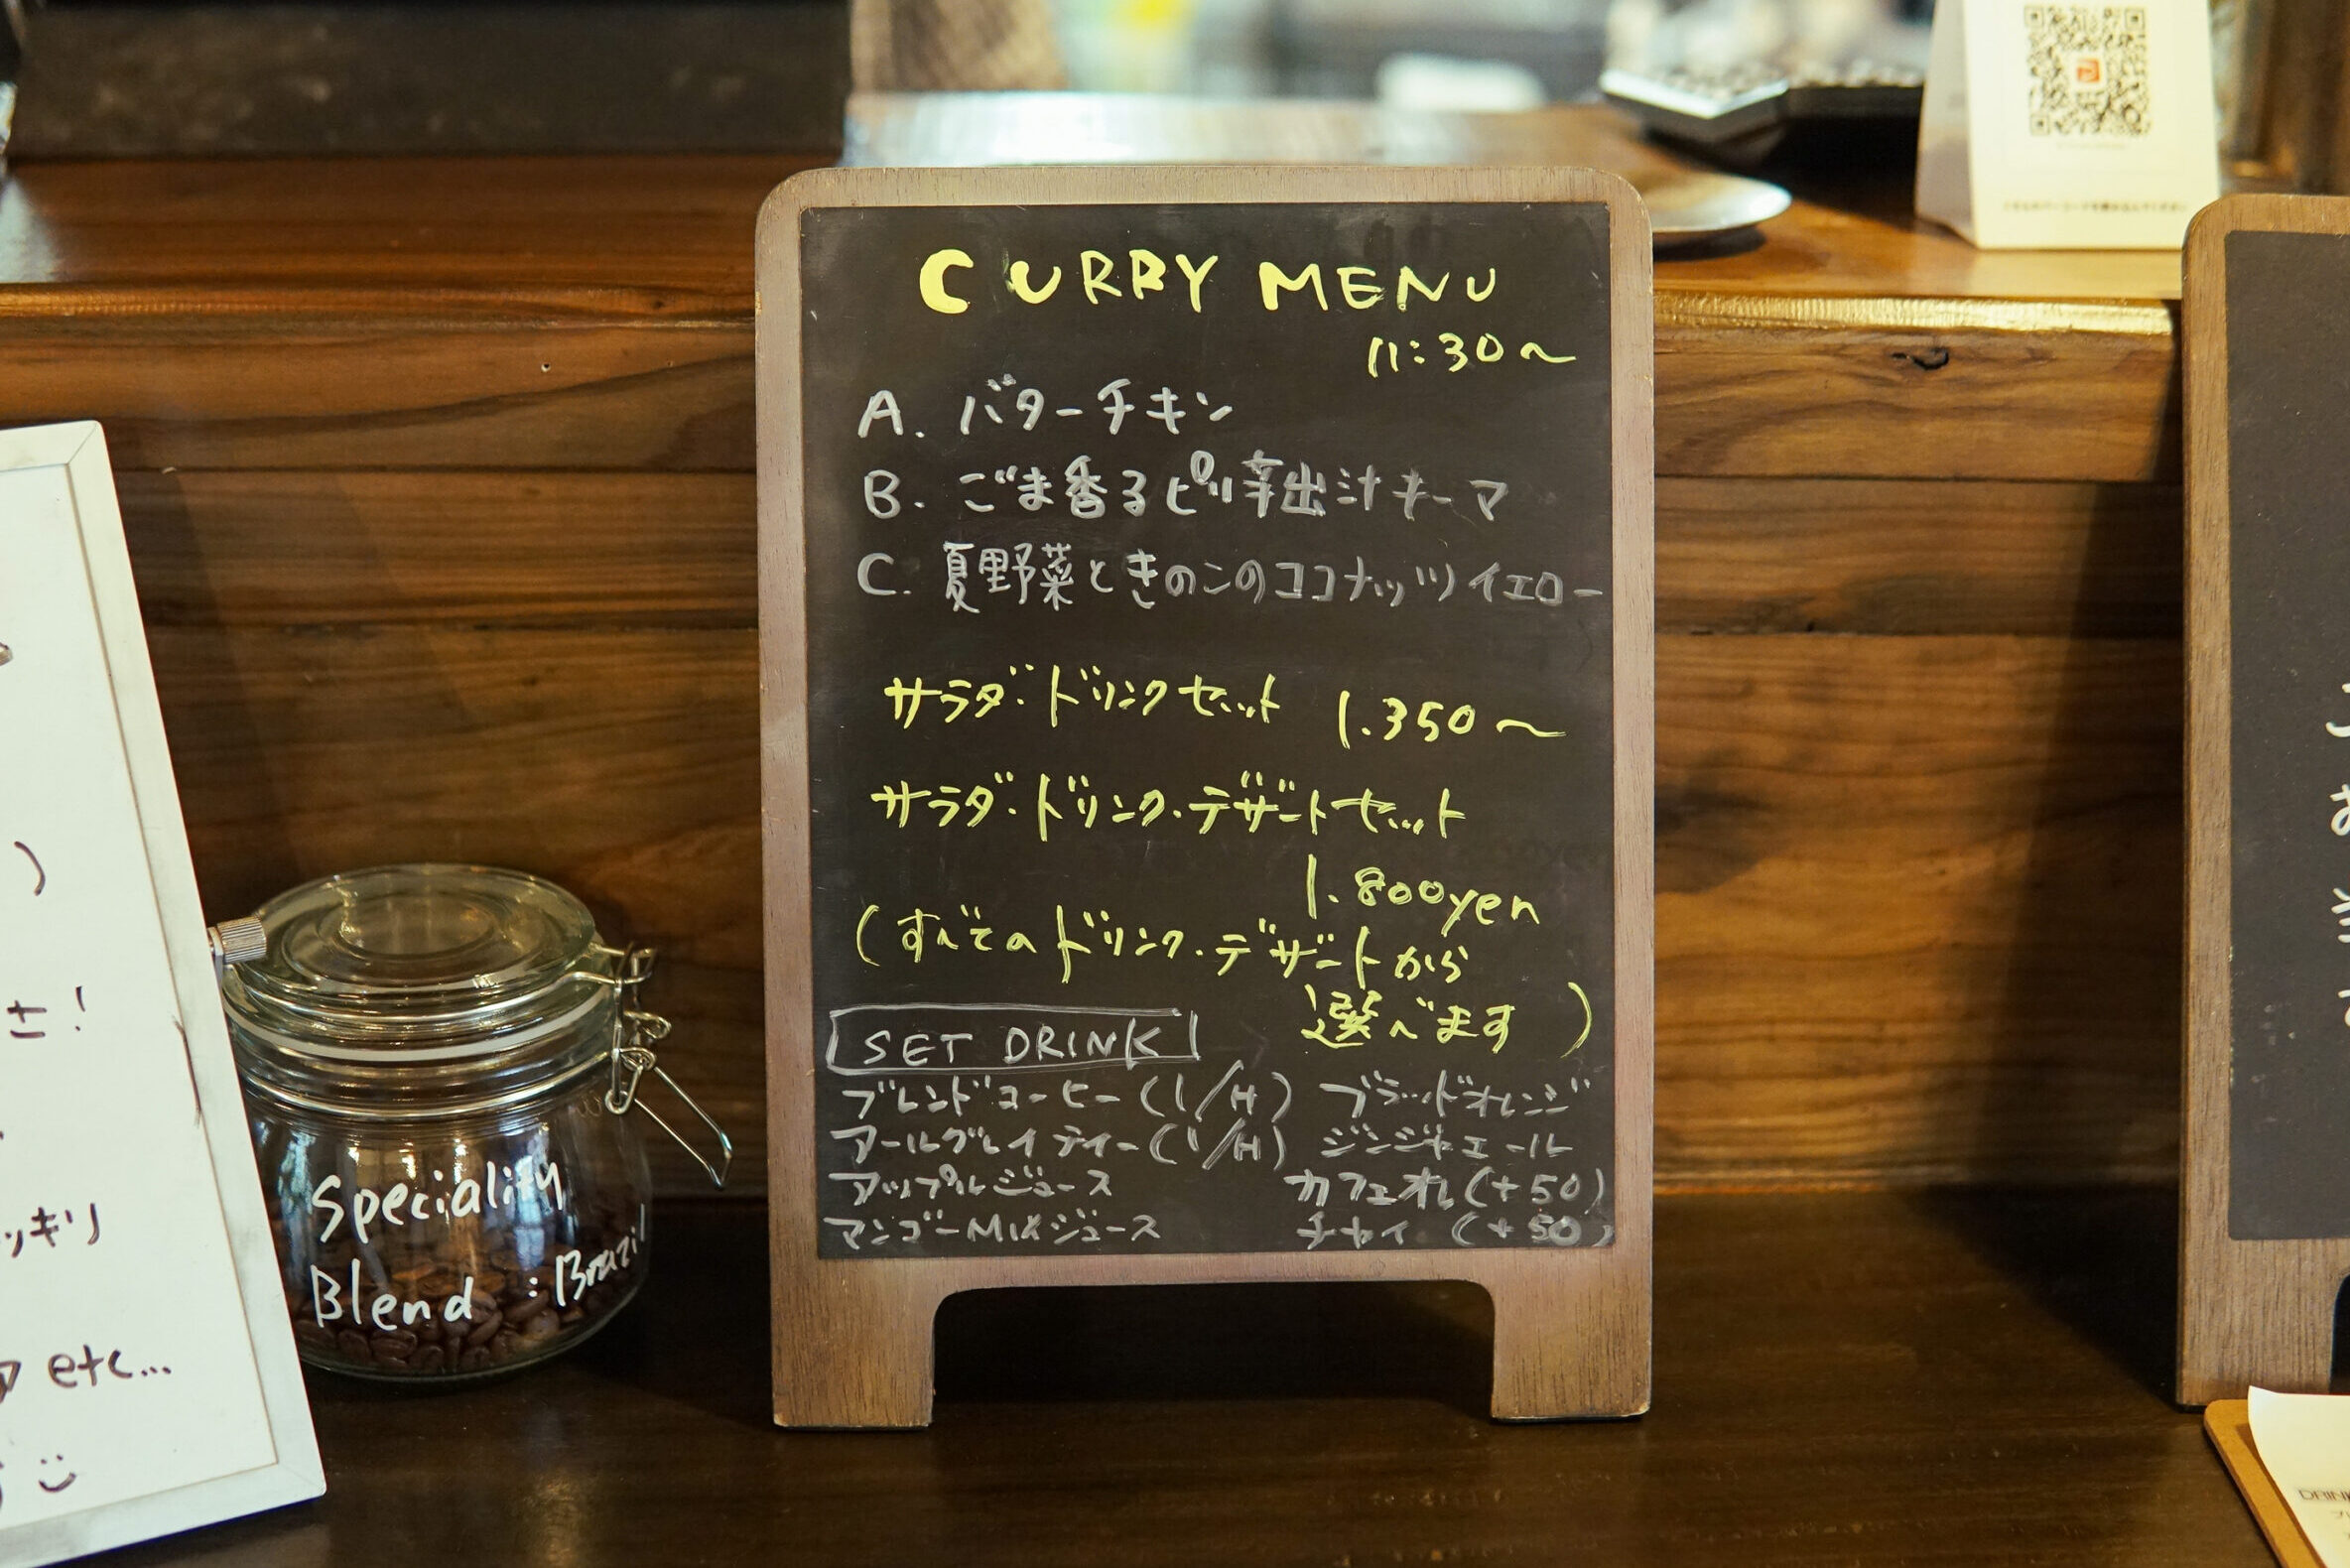 CURRY MENU
11:30〜
A. バターチキン
B. ごま香るピリ辛出汁キーマ
C. 夏野菜ときのこのココナッツイエロー
サラダ・ドリンクセット 1.350〜
サラダ・ドリンク・デザートセット
1.800yen
(すべてのドリンク・デザートから
選べます)
SET DRINK
ブレンドコーヒー(I/H) ブラッドオレンジ
アールグレイティー(I/H) ジンジャエール
アップルジュース カフェオレ(+50)
マンゴーMIXジュース チャイ (+50)
Speciality
Blend :Brazil
さ!
ッキリ
etc...
DRINK